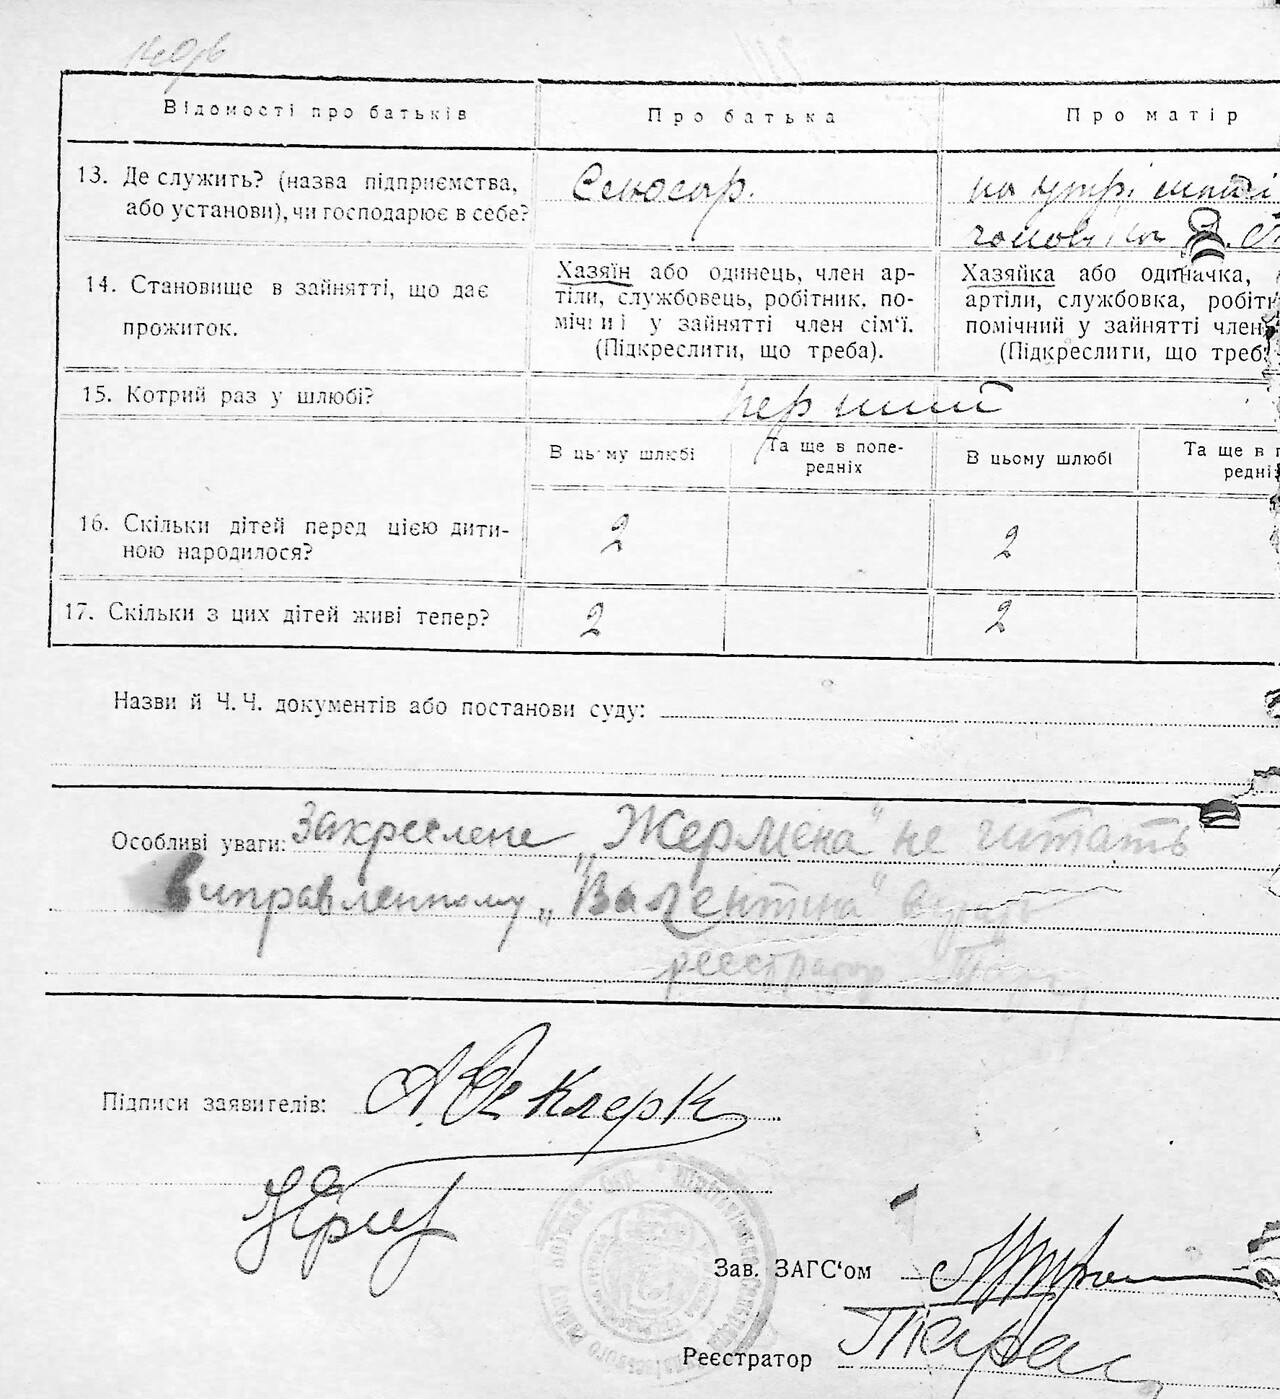 Відомості про батьків
Про батька
Про матір
13. Де служить? (назва підприємства,
або установи), чи господарює в себе?
Слюсар.
на утрі
14. Становище в зайнятті, що дає
прожиток.
Хазяїн або одинець, член ар-
тіли, службовець, робітник, по-
мічний у зайнятті член сім'ї.
(Підкреслити, що треба).
Хазяйка або одиначка,
артіли, службовка, робітн
помічний у зайнятті член
(Підкреслити, що треб
15. Котрий раз у шлюбі?
перший
В цьому шлюбі
Та ще в попе-
редніх
В цьому шлюбі
Та ще в п
редніх
16. Скільки дітей перед цією дити-
ною народилося?
2
2
17. Скільки з цих дітей живі тепер?
2
2
Назви й Ч.Ч. документів або постанови суду:
Особливі уваги: Закреслене „Жермена" не читать
виправленному „Валентина"
реєстратор
Підписи заявителів: А. Де Клерк
Зав. ЗАГС'ом
Реєстратор Тарас